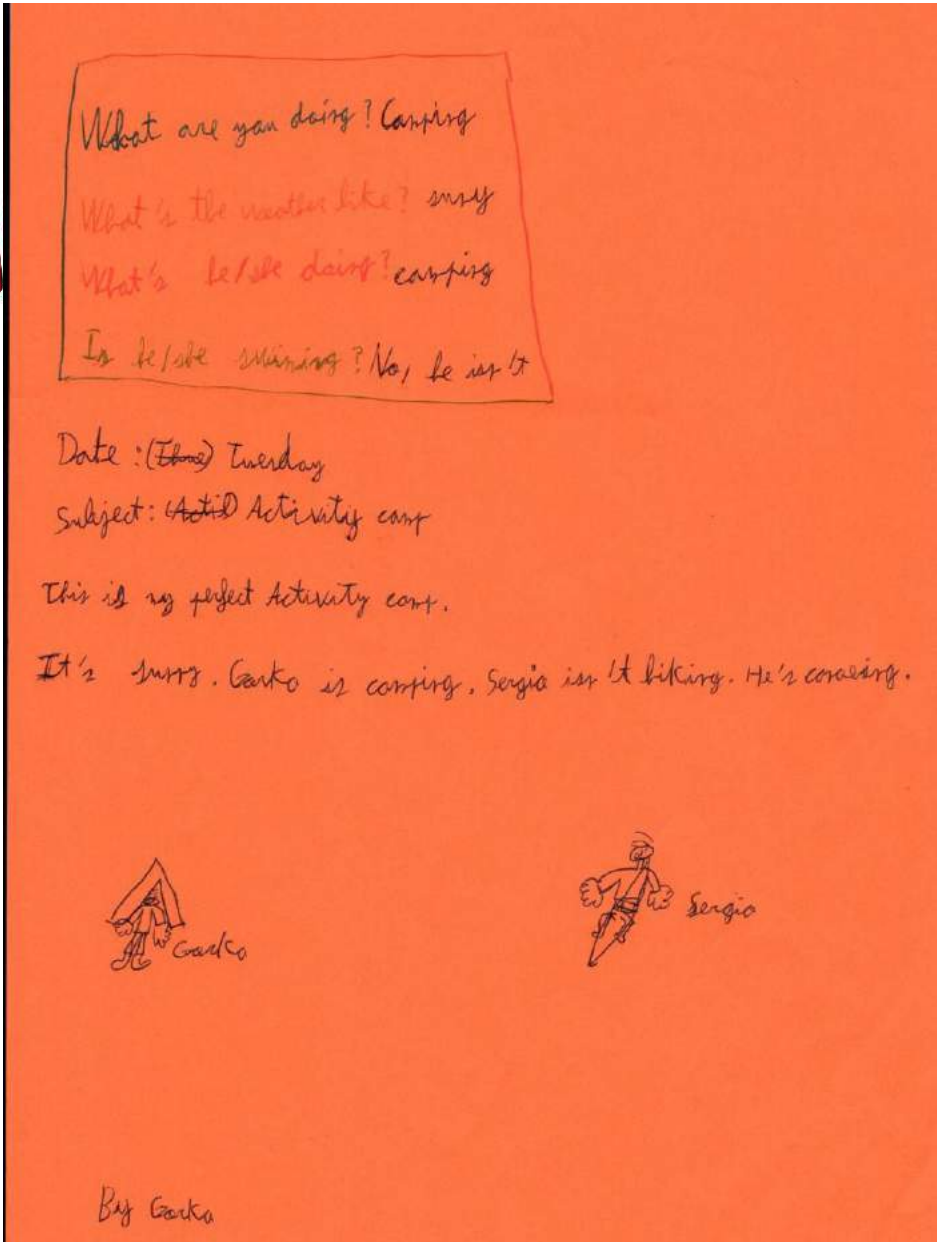 What are you doing? Camping
What's the weather like? suny
What's he/she doing? camping
Is he/she swiming? No, he isn't
Date: (Thus) Tuesday
Subject: (Acti) Activity camp
This is my perfect Activity camp.
It's sunny. Gorka is camping. Sergio isn't hiking. He's canoeing.
Gorka
Sergio
By Gorka